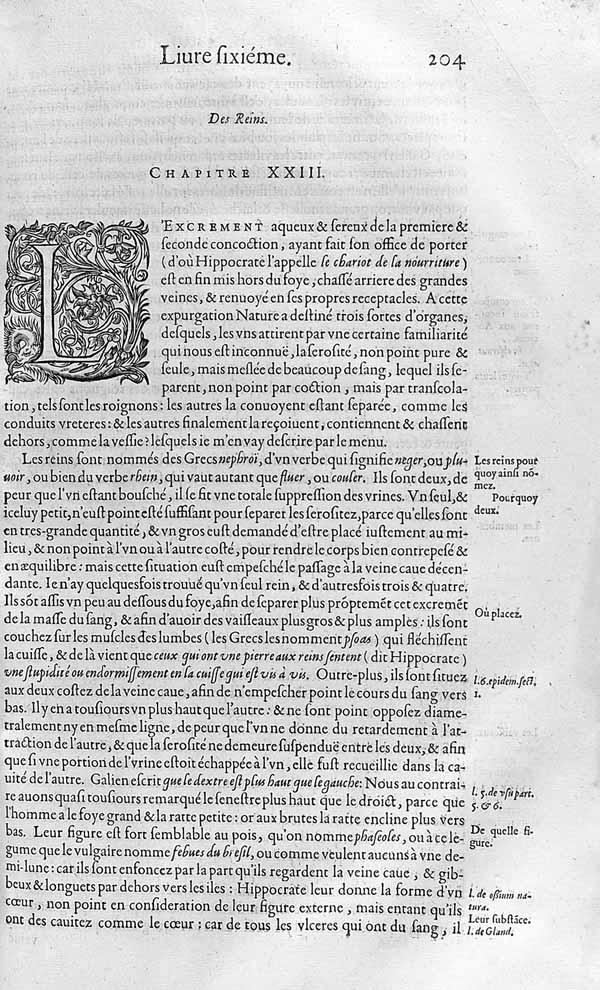 Liure ſixiéme.
204
Des Reins.
CHAPITRE XXIII.
L'EXCREMENT aqueux & ſereux de la premiere &
ſeconde concoction, ayant fait ſon office de porter
(d'où Hippocrate l'appelle le chariot de la nourriture)
eſt en fin mis hors du foye, chaſſé arriere des grandes
veines, & renuoyé en ſes propres receptacles. A cette
expurgation Nature a deſtiné trois ſortes d'organes,
deſquels, les vns attirent par vne certaine familiarité
qui nous eſt inconnuë, la ſeroſité, non point pure &
ſeule, mais meſlée de beaucoup de ſang, lequel ils ſe-
parent, non point par coction, mais par tranſcola-
tion, tels ſont les roignons: les autres la conuoyent eſtant ſeparée, comme les
conduits vreteres: & les autres finalement la reçoiuent, contiennent & chaſſent
dehors, comme la veſſie: leſquels ie m'en vay deſcrire par le menu.
Les reins ſont nommés des Grecs nephroi, d'vn verbe qui ſignifie neger, ou plu-
uoir, ou bien du verbe rhein, qui vaut autant que fluer, ou couler. Ils ſont deux, de
peur que l'vn eſtant bouſché, il ſe fit vne totale ſuppreſſion des vrines. Vn ſeul, &
iceluy petit, n'euſt point eſté ſuffiſant pour ſeparer les ſeroſitez, parce qu'elles ſont
en tres-grande quantité, & vn gros euſt demandé d'eſtre placé iuſtement au mi-
lieu, & non point à l'vn ou à l'autre coſté, pour rendre le corps bien contrepeſé &
en æquilibre: mais cette ſituation euſt empeſché le paſſage à la veine caue deſcen-
dante. Ie n'ay quelquesfois trouué qu'vn ſeul rein, & d'autresfois trois & quatre.
Ils sõt aſſis vn peu au deſſous du foye, afin de ſeparer plus prõptemẽt cet excremẽt
de la maſſe du ſang, & afin d'auoir des vaiſſeaux plus gros & plus amples: ils ſont
couchez ſur les muſcles des lumbes (les Grecs les nomment pſoas) qui fléchiſſent
la cuiſſe, & de là vient que ceux qui ont vne pierre aux reins ſentent (dit Hippocrate)
vne ſtupidité ou endormiſſement en la cuiſſe qui eſt vis à vis. Outre-plus, ils ſont ſituez
aux deux coſtez de la veine caue, afin de n'empeſcher point le cours du ſang vers
bas. Il y en a touſiours vn plus haut que l'autre: & ne ſont point oppoſez diame-
tralement ny en meſme ligne, de peur que l'vn ne donne du retardement à l'at-
traction de l'autre, & que la ſeroſité ne demeure ſuſpenduë entre les deux, & afin
que ſi vne portion de l'vrine eſtoit échappée à l'vn, elle fuſt recueillie dans la ca-
uité de l'autre. Galien eſcrit que le dextre eſt plus haut que le gauche: Nous au contrai-
re auons quaſi touſiours remarqué le ſeneſtre plus haut que le droict, parce que
l'homme a le foye grand & la ratte petite: or aux brutes la ratte encline plus vers
bas. Leur figure eſt fort ſemblable au pois, qu'on nomme phaſeoles, ou à ce le-
gume que le vulgaire nomme febues du breſil, ou comme veulent aucuns à vne de-
mi-lune: car ils ſont enfoncez par la part qu'ils regardent la veine caue, & gib-
beux & longuets par dehors vers les iles: Hippocrate leur donne la forme d'vn
cœur, non point en conſideration de leur figure externe, mais entant qu'ils
ont des cauitez comme le cœur; car de tous les vlceres qui ont du ſang, il
Les reins pour
quoy ainſi nõ-
mez.
Pourquoy
deux.
Où placez.
l. 6. epidem. ſect.
1.
l. 5. de vſu part.
5. & 6.
De quelle fi-
gure.
l. de oſſium na-
tura.
Leur ſubſtãce.
l. de Gland.